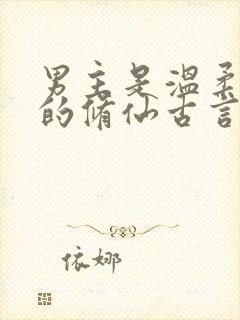 男主是温柔
的修仙古言
依娜